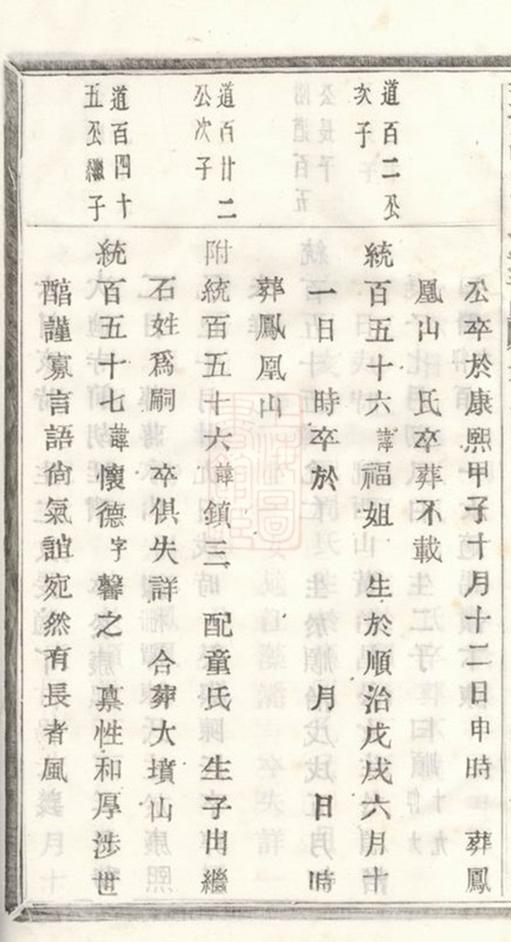 公卒於康熙甲子十月十二日申時 葬鳳
凰山 氏卒葬不載
道百二公
次子
統百五十六諱福姐 生於順治戌戌六月十
一日 時卒於 月 日 時
葬鳳凰山
道百廿二
公次子
附統百五十六諱鎮三 配童氏 生子出繼
石姓爲嗣 卒俱失詳 合葬大墳山
道百四十
五公繼子
統百五十七諱懷德字馨之 稟性和厚涉世
謹寡言語尚氣誼宛然有長者風